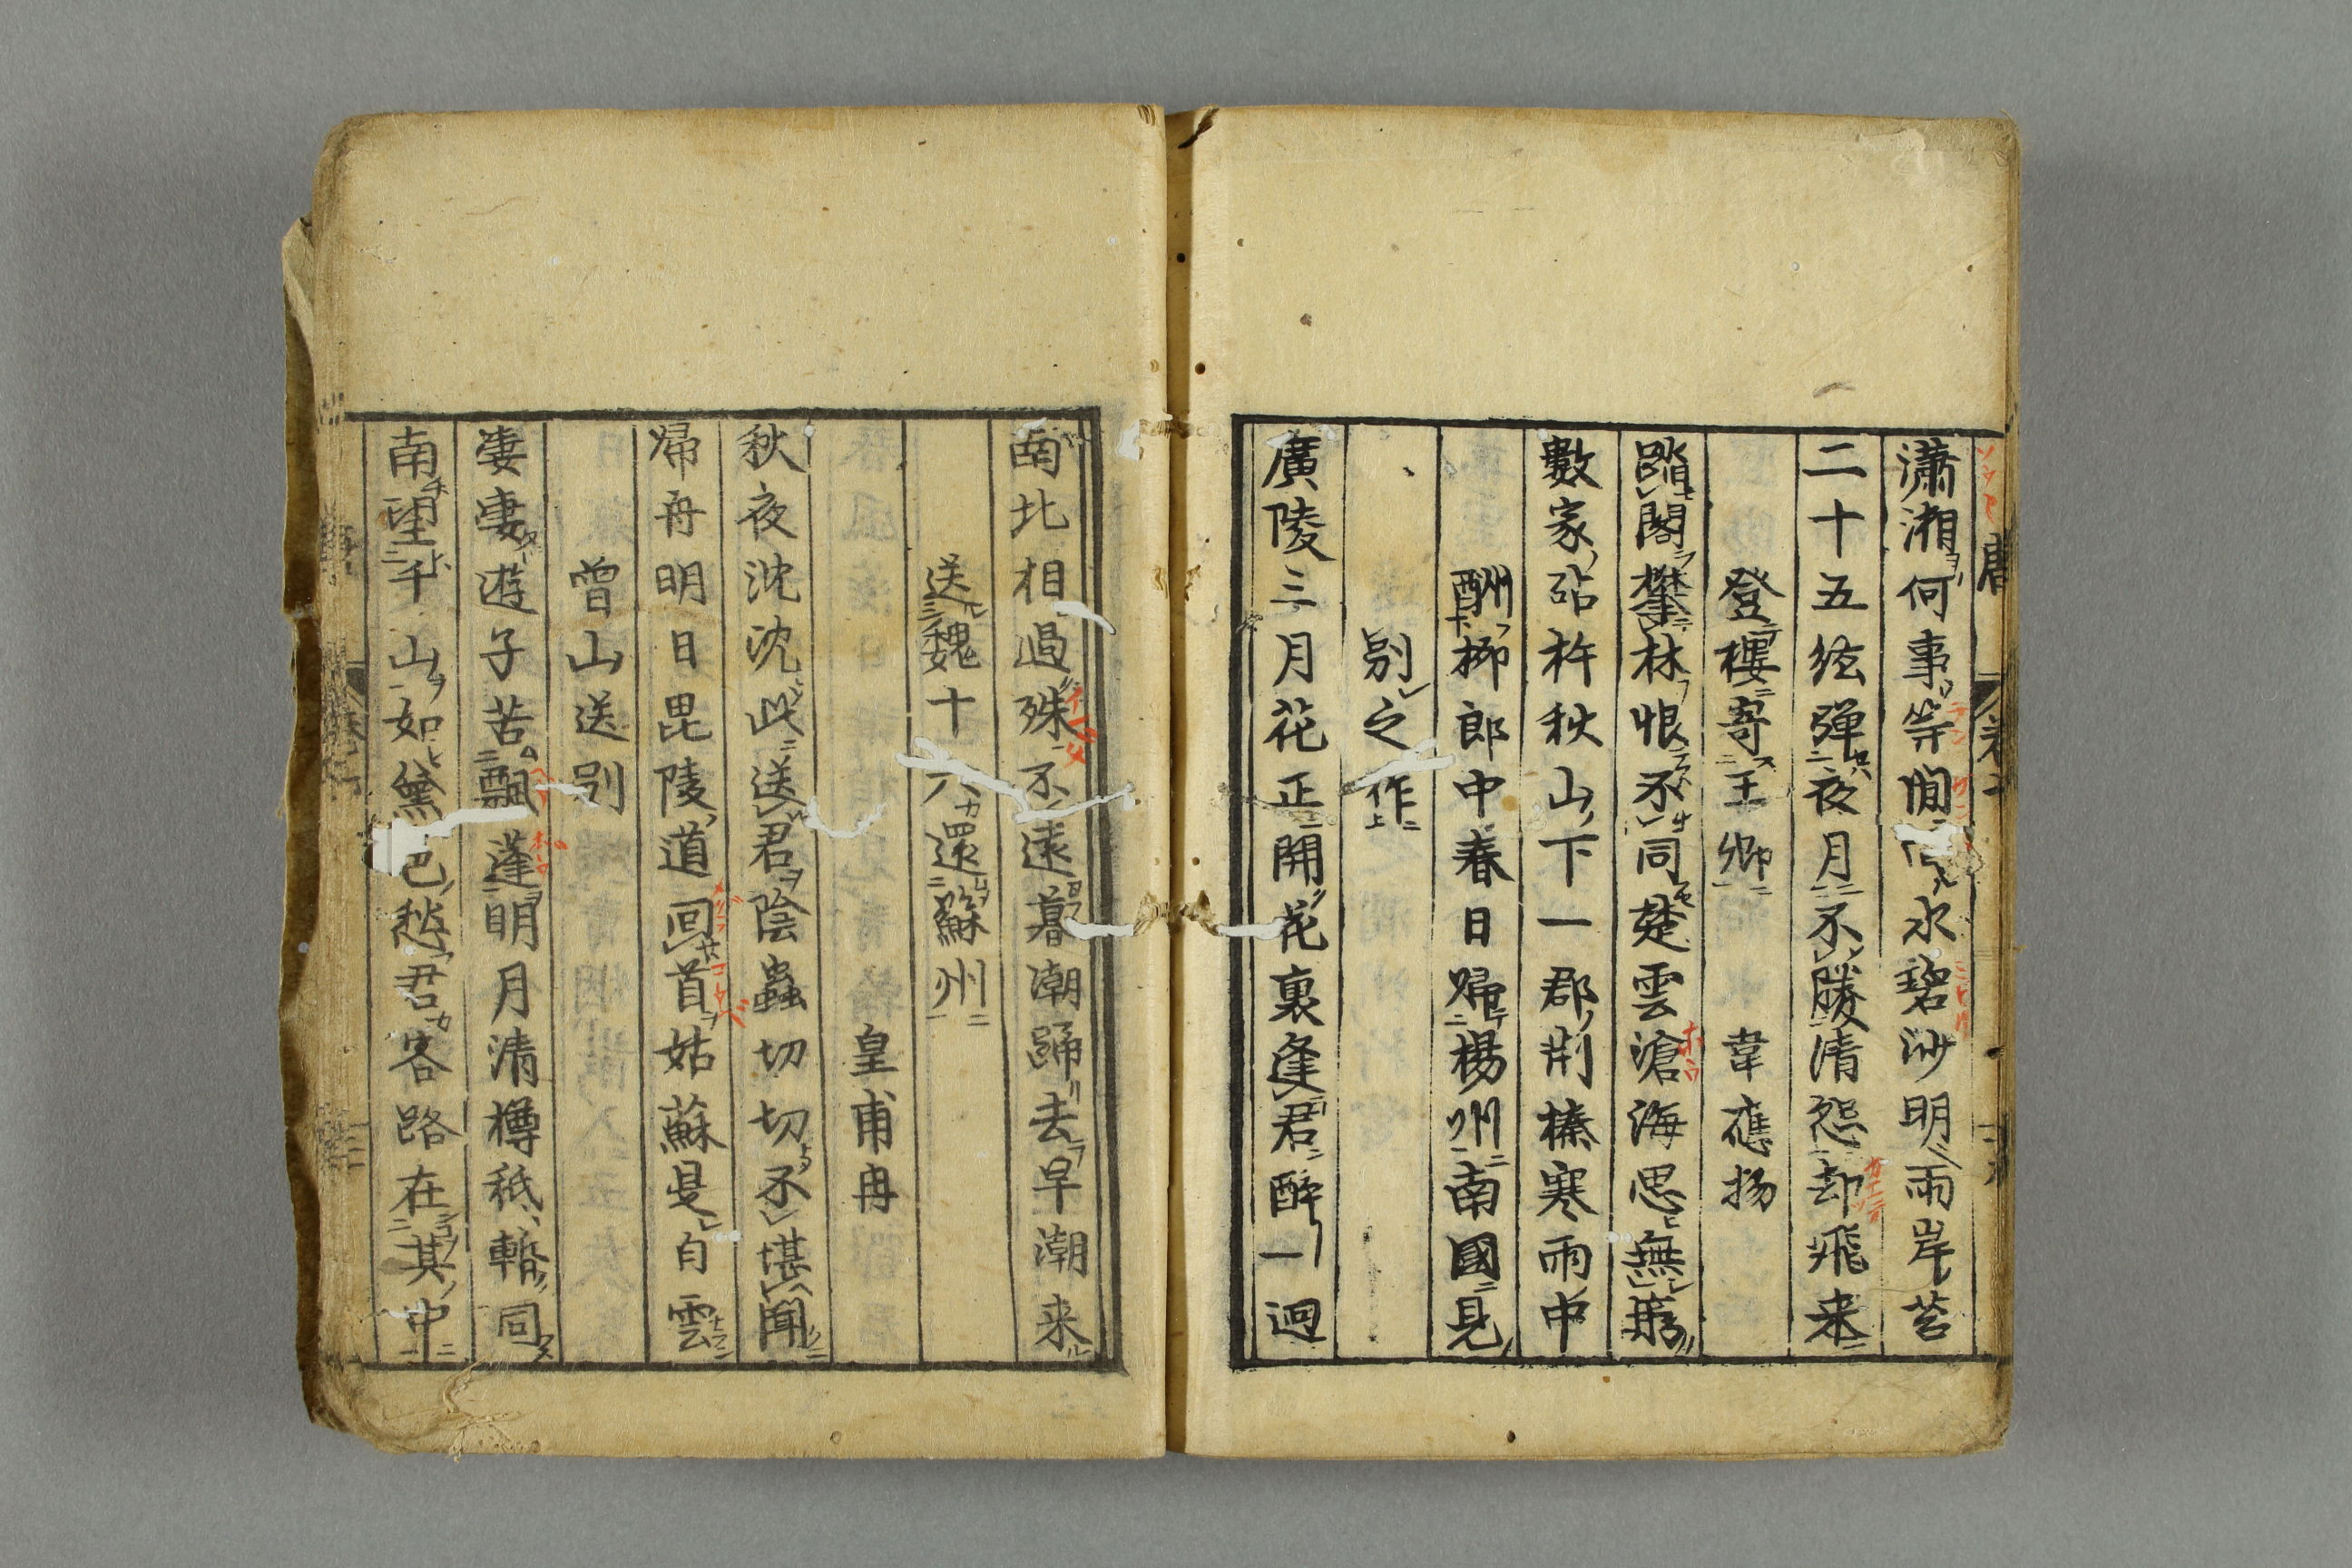 瀟湘何事等閒回水碧沙明兩岸苔
二十五絃彈夜月不勝清怨却飛来
登樓寄王卿 韋應物
踏閣攀林恨不同楚雲滄海思無窮
數家砧杵秋山下一郡荆榛寒雨中
酬柳郎中春日歸楊州南國見
別之作
廣陵三月花正開花裏逢君醉一迴
南北相過殊不遠暮潮歸去早潮来
送魏十六還蘇州
皇甫冉
秋夜沈沈此送君陰蟲切切不堪聞
帰舟明日毘陵道回首姑蘇是白雲
曾山送別
凄凄遊子苦飄蓬明月清樽秖暫同
南望千山如黛色愁君客路在其中